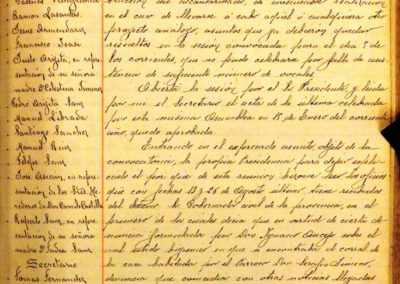 Ramon Lasantas
Jesus Armendariz
Francisco Isasi
Justo Argeta, en repre
sentacion de su señora
madre Dª Celestina Jimenez
Pedro Argeta Sanz
Manuel Labrada
Santiago Sanchez
Manuel Ruiz
Felipe Sanz
José Ascain, en repre
sentacion de los Hered
deros de Don Camilo Castilla
Roberto Sanz, en repre
sentacion de su señora
madre Dª Isidra Sanz
Secretario
Tomas Fernandez
en el caso de llevarse á cabo aquel ó cualquiera otro
proyecto analogo, asuntos que ya debieron quedar
resueltos en la sesion convocada para el dia 5 de
los corrientes, que no pudo celebrarse por falta de asis
tencia de suficiente numero de vocales.
Abierta la sesion por el Sr. Presidente, y leida
por mi el Secretario el acta de la ultima celebrada
por esta misma Asamblea en 18 de Enero del corriente
año, quedo aprobada.
Entrando en el expresado asunto, objeto de la
convocatoria, la propia Presidencia para dejar explica
do el por que de esta reunion hizo leer los oficios
que con fechas 13 y 26 de Agosto ultimo tiene recibidos
del Excmo. Sr. Gobernador civil de la provincia, en el
primero de los cuales decia que en virtud de cierta de
nuncia formulada por Don Ignacio sobre el
mal estado higienico en que se encontraba el corral de
la casa habitada por el Parroco Don Serafin Jimeno,
denuncia que coincidia con otras noticias llegadas